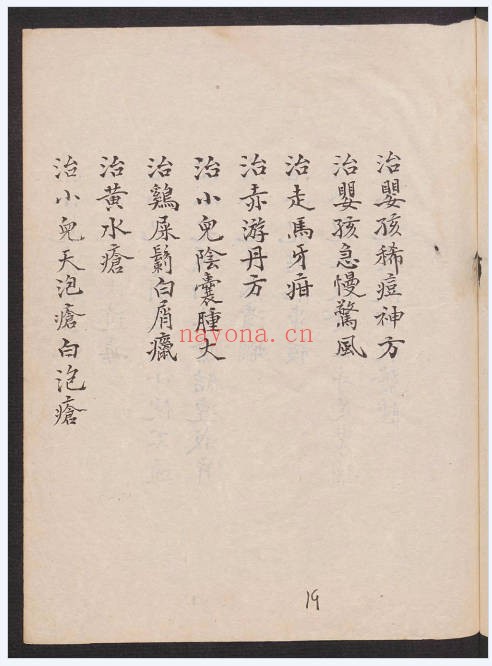 治嬰孩稀痘神方
治嬰孩急慢驚風
治走馬牙疳
治赤游丹方
治小兒陰囊腫大
治鷄屎鬁白屑癘
治黃水瘡
治小兒天泡瘡白泡瘡
nayona.cn
19